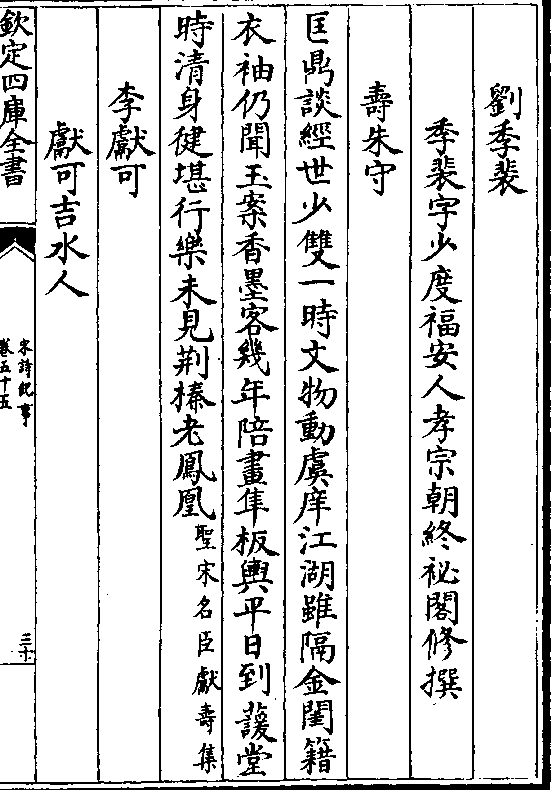 劉季裴
季裴字少度福安人孝宗朝終祕閣修撰
壽朱守
匡鼎談經世少雙一時文物動虞庠江湖雖隔金閨籍
衣袖仍聞玉案香墨客幾年陪畫隼板輿平日到蘐堂
時清身健堪行樂未見荆榛老鳳凰聖宋名臣獻壽集
李獻可
獻可吉水人
欽定四庫全書
宋詩紀事
卷五十五
三十